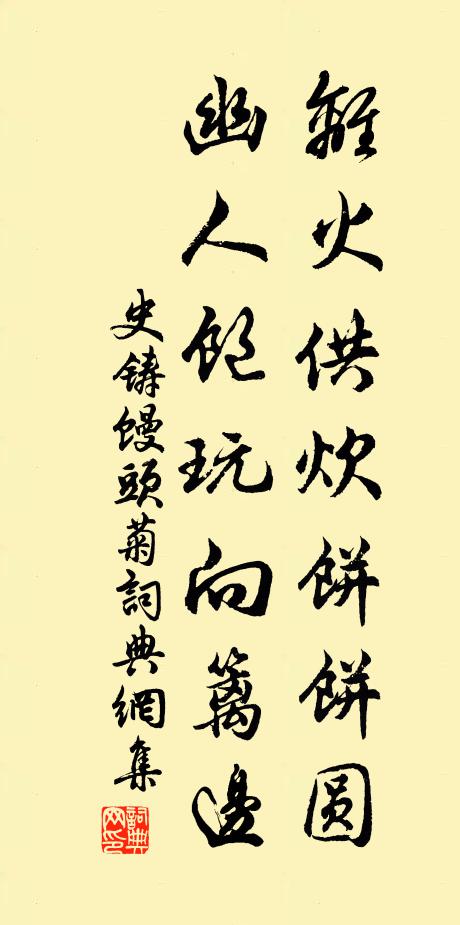 難火供炊餅餅圆
幽人飽玩向篱邊
史鑄饅頭菊詞典網集
詞典
网印